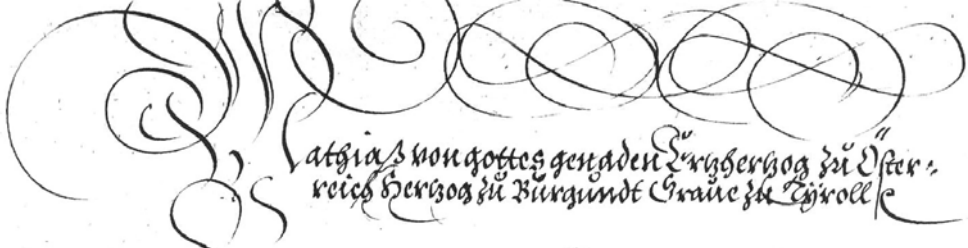 Mathiaß von gottes genaden Ertzhertzog zu Öster-
reich Hertzog zu Burgundt Graue zu Tÿroll